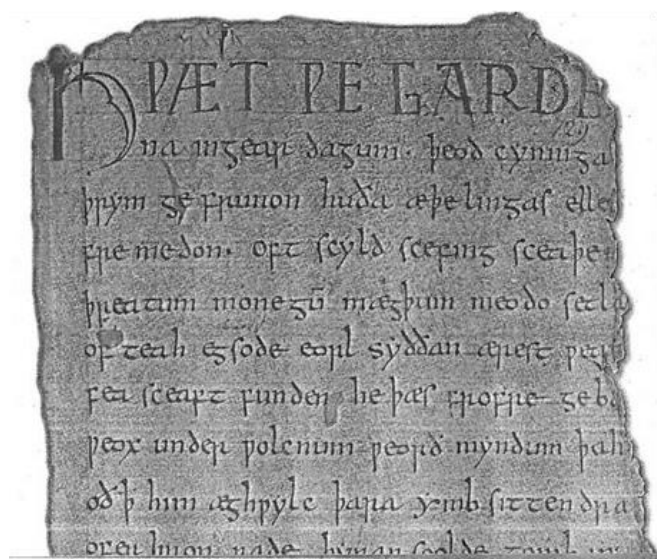 HǷÆT ǷE GARDE
129
na ingear dagum. þeod cyninga
þrym ge frunon huða æþelingas elle
fre medon. oft scyld scefing sceaþe
þreatum monegū mægþum meodo setla
of teah egsode eorl syððan ærest ƿear
fea sceaft funden he þæs frofre geba
ƿeox under ƿolcnum ƿeorð myndum þah
oð ꝥ him æghƿylc þara ymb sittendra
ofer hron rade hyran scolde